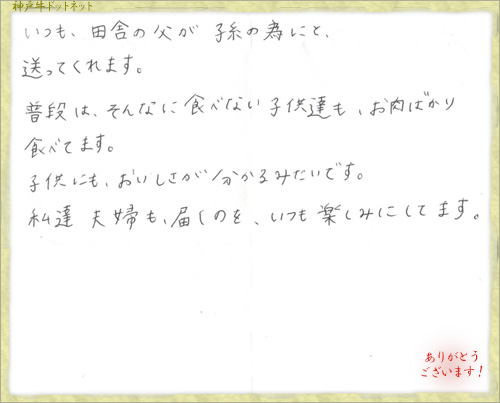 神戸牛ドットネット
いつも、田舎の父が 子糸の為にと、
送ってくれます。
普段は、そんなに食べない子供達も、お肉ばかり
食べてます。
子供にも、おいしさが分かるみたいです。
私達 夫婦も、届くのを、いつも楽しみにしてます。
ありがとう
ございます!